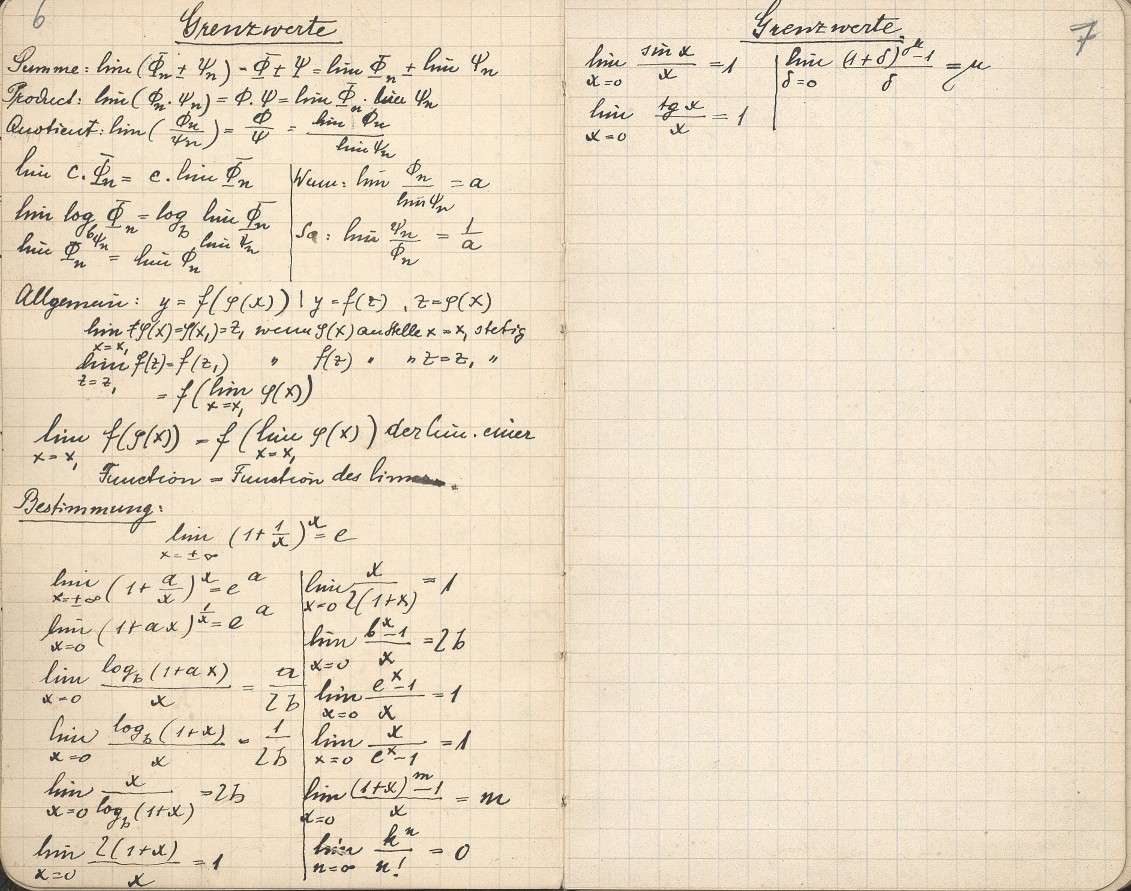 6
Grenzwerte
Summe: lim (Φn ± Ψn) = Φ ± Ψ = lim Φn ± lim Ψn
Product: lim (Φn . Ψn) = Φ . Ψ = lim Φn . lim Ψn
Quotient: lim (Φn/Ψn) = Φ/Ψ = lim Φn / lim Ψn
lim c. Φn = c. lim Φn
lim log_b Φn = log_b lim Φn
lim Φn^Ψn = lim Φn^lim Ψn
Wenn: lim Φn / lim Ψn = a
So: lim Ψn/Φn = 1/a
Allgemein: y = f(φ(x)) | y = f(z) , z = φ(x)
lim x=x₁ φ(x) = φ(x₁) = z₁ wenn φ(x) an stelle x = x₁ stetig
lim z=z₁ f(z) = f(z₁) " f(z) " " z = z₁ "
= f(lim x=x₁ φ(x))
lim x=x₁ f(φ(x)) = f(lim x=x₁ φ(x)) der lim. einer
Function = Function des lim
Bestimmung:
lim x=±∞ (1+1/x)^x = e
lim x=±∞ (1+a/x)^x = e^a
lim x=0 (1+ax)^1/x = e^a
lim x=0 log_b(1+ax)/x = a/lb
lim x=0 log_b(1+x)/x = 1/lb
lim x=0 x/log_b(1+x) = lb
lim x=0 l(1+x)/x = 1
lim x=0 x/l(1+x) = 1
lim x=0 b^x-1/x = lb
lim x=0 e^x-1/x = 1
lim x=0 x/e^x-1 = 1
lim x=0 (1+x)^m-1/x = m
lim n=∞ k^n/n! = 0
7
Grenzwerte
lim x=0 sin x/x = 1
lim x=0 tg x/x = 1
lim δ=0 (1+δ)^μ-1/δ = μ